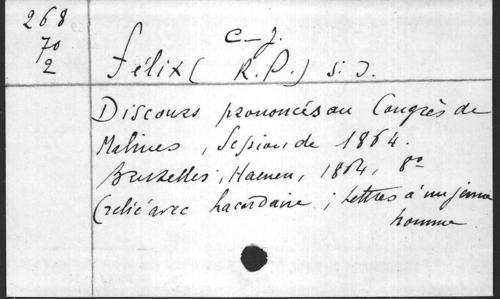 268
70
2
C-J.
Félix (R.P.) S.J.
Discours prononcés au Congrès de
Malines, Session de 1864.
Bruxelles, Haenen, 1864, 8°
(relié avec Lacordaire ; Lettres à un jeune
homme